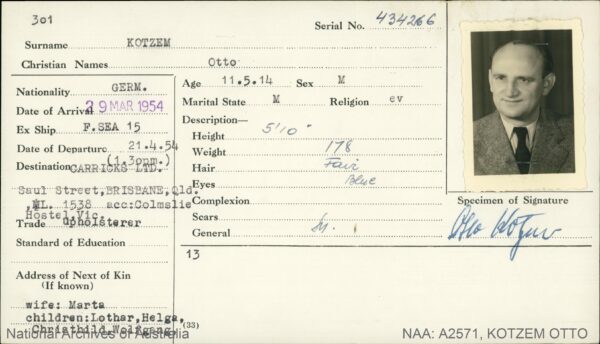 301
Serial No. 434266
Surname KOTZEM
Christian Names Otto
Nationality GERM.
Date of Arrival 29 MAR 1954
Ex Ship F.SEA 15
Date of Departure 21.4.54
(1.30pm.)
Destination CARRICKS LTD.
Saul Street, BRISBANE, Qld.
WL. 1538 acc:Colmslie
Hostel, Vic.
Trade Upholsterer
Standard of Education
Address of Next of Kin
(If known)
wife: Marta
children: Lothar, Helga,
Christhild, Wolfgang
(33)
Age 11.5.14 Sex M
Marital State M Religion ev
Description—
Height 5'10"
Weight 178
Hair Fair
Eyes Blue
Complexion
Scars
General
13
Specimen of Signature
Otto Kotzem
National Archives of Australia
NAA: A2571, KOTZEM OTTO